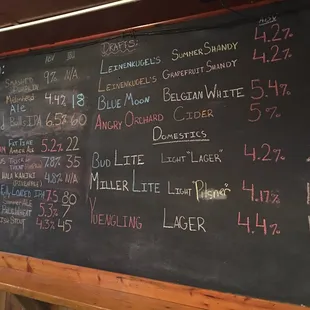 DRAFTS:
ABV
LEINENKUGEL'S SUMMER SHANDY 4.2%
LEINENKUGEL'S GRAPEFRUIT SHANDY 4.2%
BLUE MOON BELGIAN WHITE 5.4%
ANGRY ORCHARD CIDER 5%
DOMESTICS
BUD LITE LIGHT "LAGER" 4.2%
MILLER LITE LIGHT Pilsner" 4.17%
YUENGLING LAGER 4.4%
9% N/A
ALE 4.4% 18
IPA 6.5% 60
FAT TIRE
AMBER ALE 5.2% 22
7.8% 35
4.8% N/A
LOADED IPA 7.5 80
5.3% 7
STOUT 4.3% 45